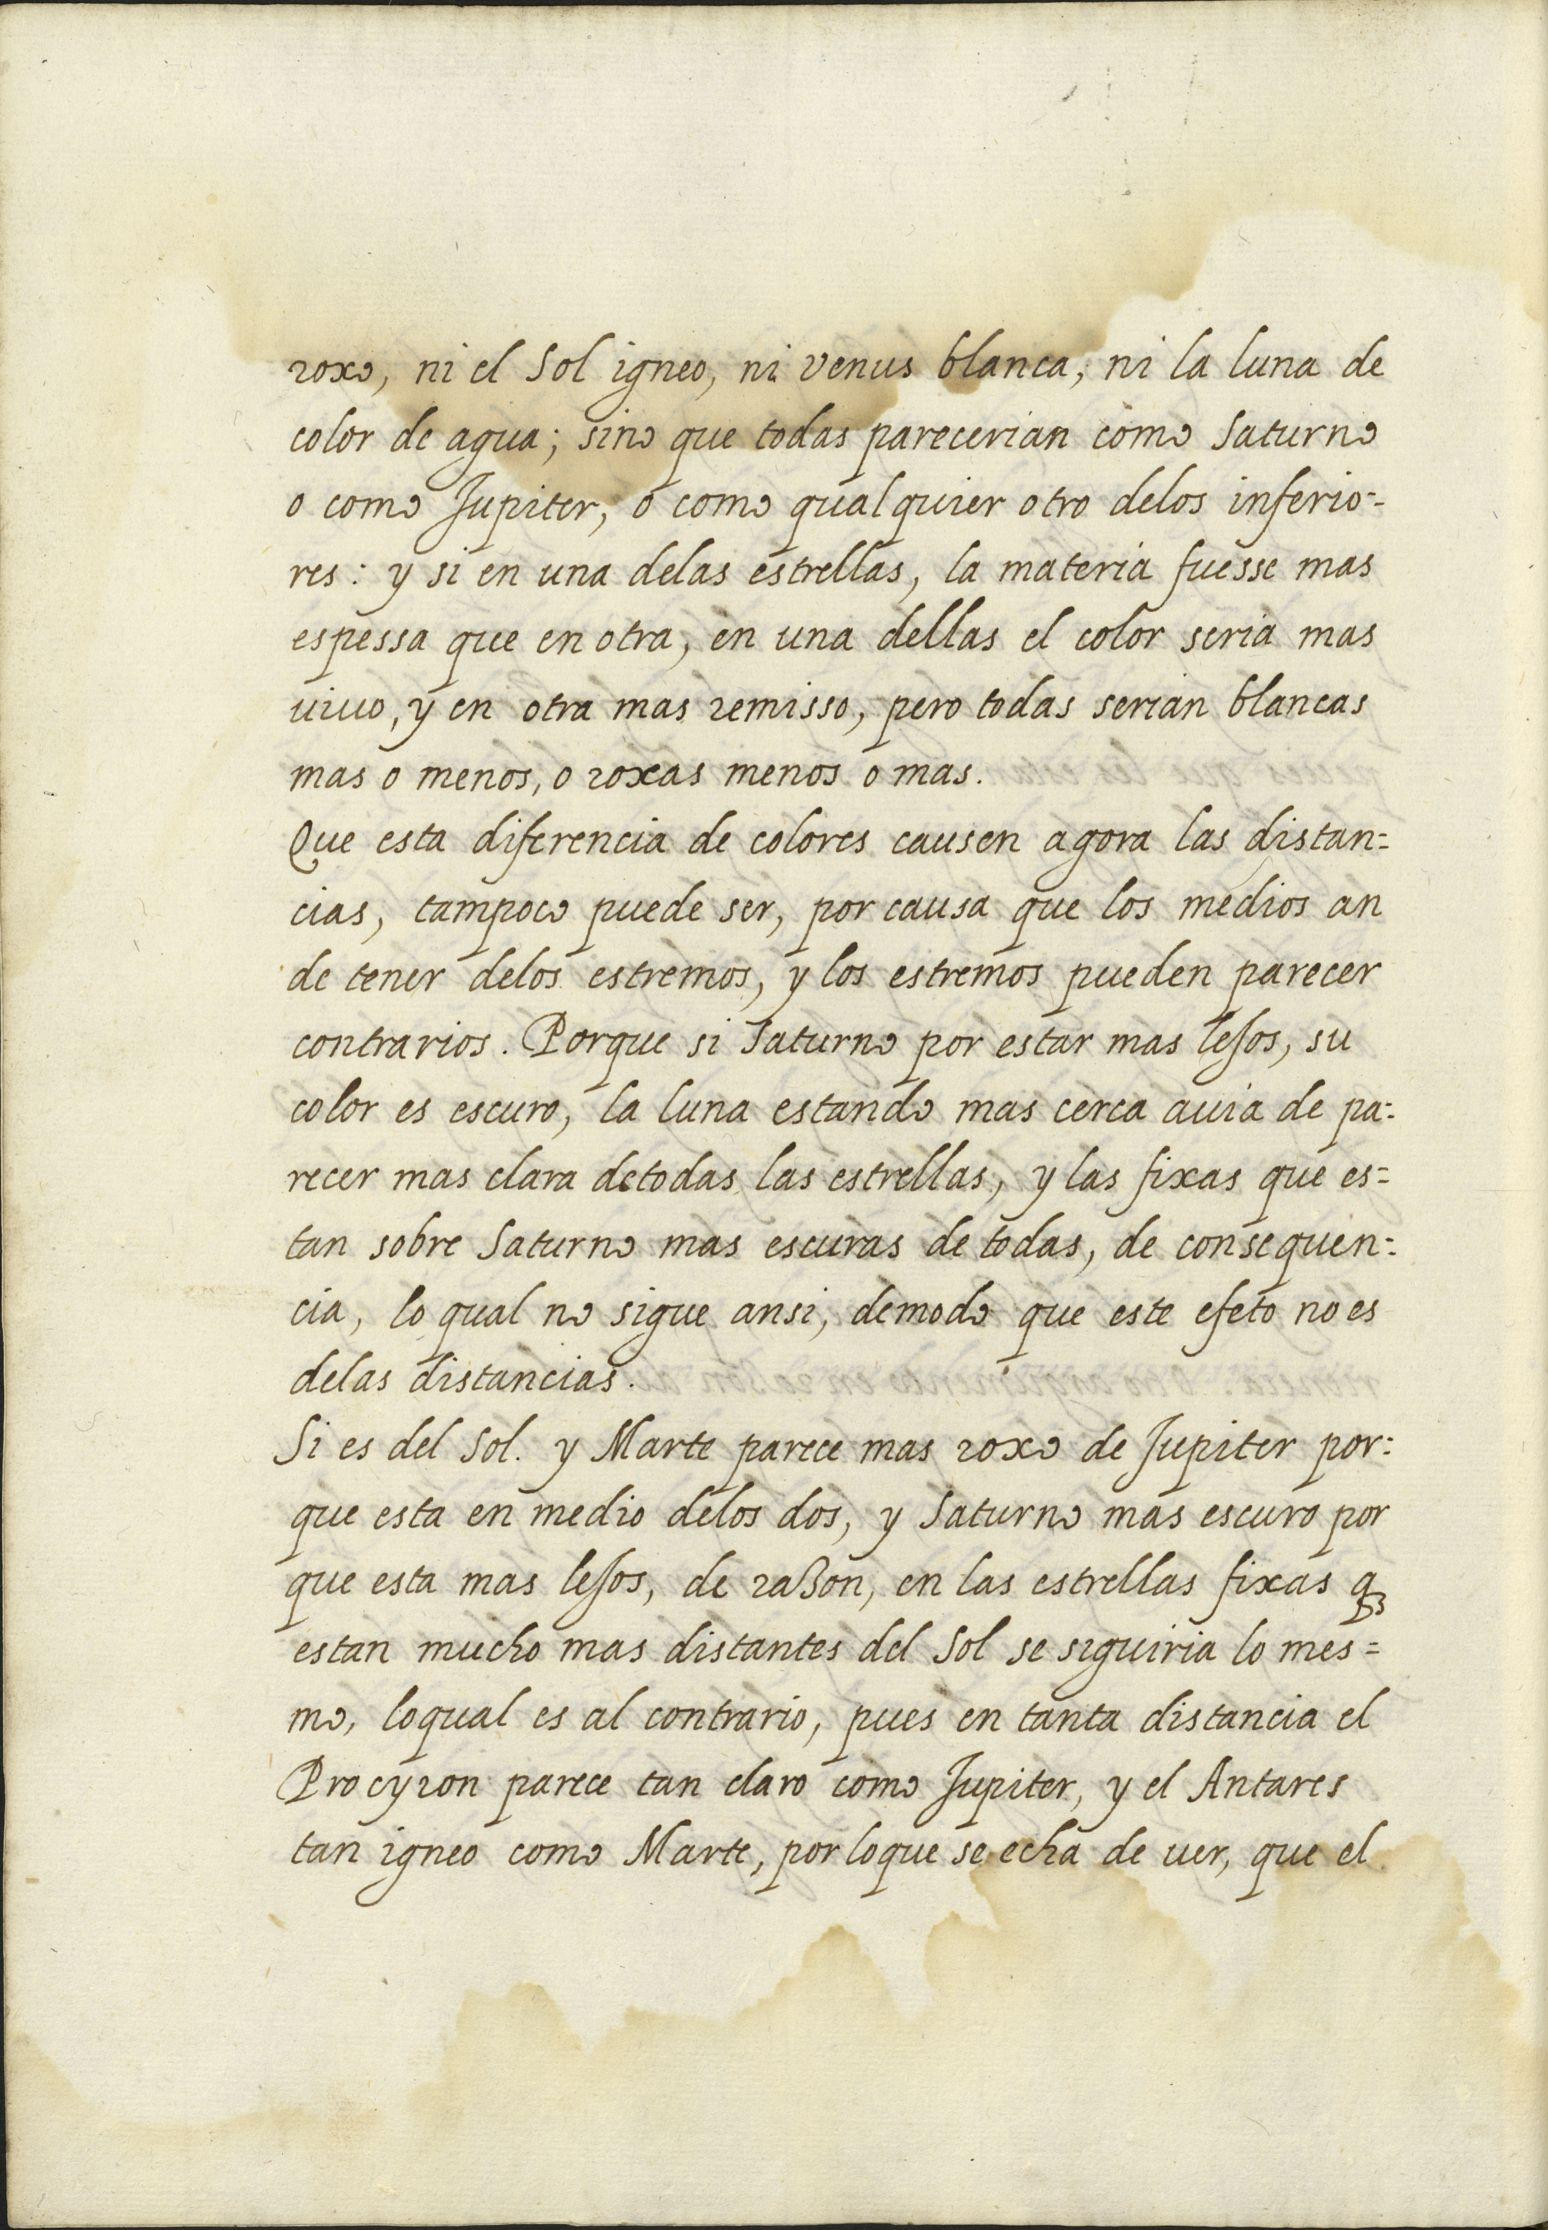 roxo, ni el Sol igneo, ni venus blanca, ni la luna de
color de agua; sino que todas parecerian como Saturno
o como Jupiter, o como qualquier otro delos inferio=
res: y si en una delas estrellas, la materia fuesse mas
espessa que en otra, en una dellas el color seria mas
uiuo, y en otra mas remisso, pero todas serian blancas
mas o menos, o roxas menos o mas.
Que esta diferencia de colores causen agora las distan=
cias, tampoco puede ser, por causa que los medios an
de tener delos estremos, y los estremos pueden parecer
contrarios. Porque si Saturno por estar mas lejos, su
color es escuro, la luna estando mas cerca auia de pa=
recer mas clara detodas las estrellas, y las fixas que es=
tan sobre Saturno mas escuras de todas, de consequen=
cia, lo qual no sigue ansi, demodo que este efeto no es
delas distancias.
Si es del Sol. y Marte parece mas roxo de Jupiter por=
que esta en medio delos dos, y Saturno mas escuro por
que esta mas lejos, de razon, en las estrellas fixas q
estan mucho mas distantes del Sol se siguiria lo mes=
mo, loqual es al contrario, pues en tanta distancia el
Procyron parece tan claro como Jupiter, y el Antares
tan igneo como Marte, por loque se echa de uer, que el